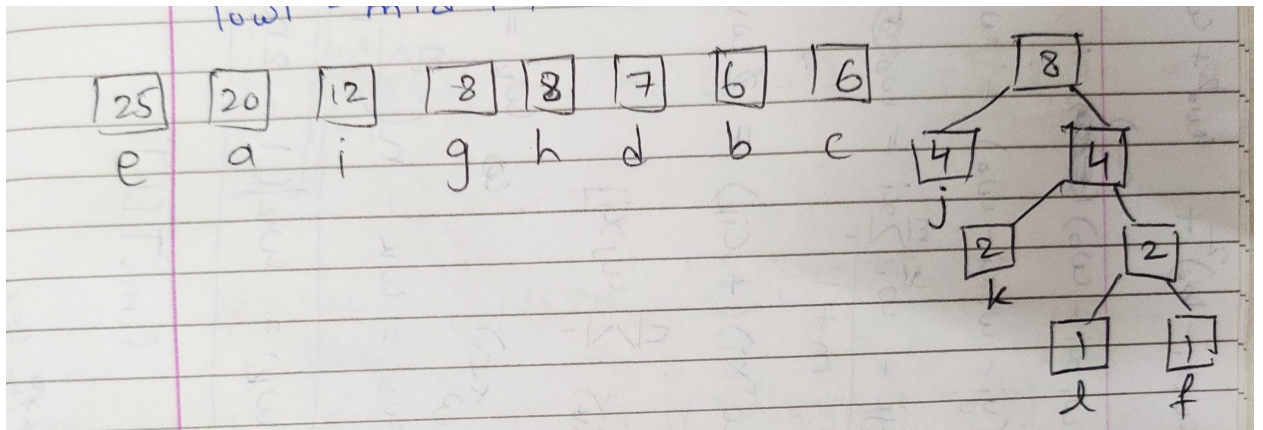 25 20 12 8 8 7 6 6 8
e a i g h d b c 4 4
j
2 2
k
1 1
l f